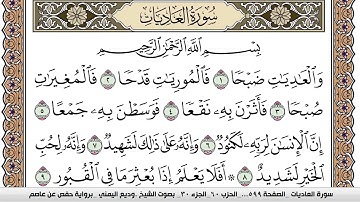 سُورَةُ العَادِيَاتِ
بِسْمِ ٱللَّهِ ٱلرَّحْمَٰنِ ٱلرَّحِيمِ
وَٱلْعَٰدِيَٰتِ ضَبْحًا ١ فَٱلْمُورِيَٰتِ قَدْحًا ٢ فَٱلْمُغِيرَٰتِ
صُبْحًا ٣ فَأَثَرْنَ بِهِۦ نَقْعًا ٤ فَوَسَطْنَ بِهِۦ جَمْعًا ٥
إِنَّ ٱلْإِنسَٰنَ لِرَبِّهِۦ لَكَنُودٌ ٦ وَإِنَّهُۥ عَلَىٰ ذَٰلِكَ لَشَهِيدٌ ٧ وَإِنَّهُۥ لِحُبِّ
ٱلْخَيْرِ لَشَدِيدٌ ٨ ۞ أَفَلَا يَعْلَمُ إِذَا بُعْثِرَ مَا فِى ٱلْقُبُورِ ٩
سورة العاديات _ الصفحة ٥٩٩ ... الحزب ٦٠ _ الجزء ٣٠ _ بصوت الشيخ _ وديع اليمني _ برواية حفص عن عاصم